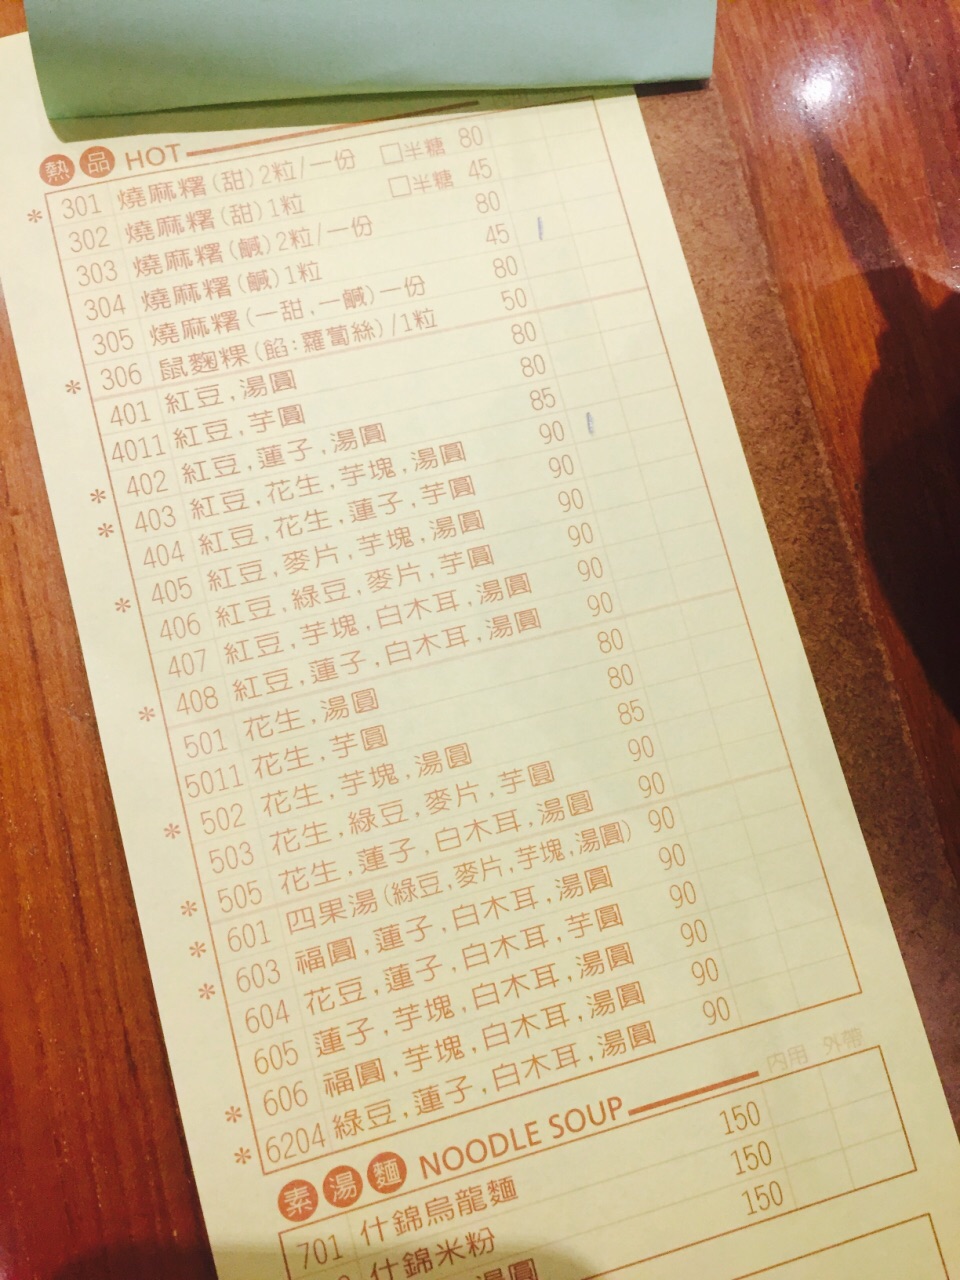 熱品 HOT
* 301 燒麻糬(甜)2粒/一份 □半糖 80
302 燒麻糬(甜)1粒 □半糖 45
303 燒麻糬(鹹)2粒/一份 80
304 燒麻糬(鹹)1粒 45
305 燒麻糬(一甜,一鹹)一份 80
* 306 鼠麴粿(餡:蘿蔔絲)/1粒 50
401 紅豆,湯圓 80
4011 紅豆,芋圓 80
* 402 紅豆,蓮子,湯圓 85
* 403 紅豆,花生,芋塊,湯圓 90
404 紅豆,花生,蓮子,芋圓 90
* 405 紅豆,麥片,芋塊,湯圓 90
406 紅豆,綠豆,麥片,芋圓 90
407 紅豆,芋塊,白木耳,湯圓 90
* 408 紅豆,蓮子,白木耳,湯圓 90
501 花生,湯圓 80
5011 花生,芋圓 80
* 502 花生,芋塊,湯圓 85
503 花生,綠豆,麥片,芋圓 90
* 505 花生,蓮子,白木耳,湯圓 90
* 601 四果湯(綠豆,麥片,芋塊,湯圓) 90
* 603 福圓,蓮子,白木耳,湯圓 90
604 花豆,蓮子,白木耳,芋圓 90
605 蓮子,芋塊,白木耳,湯圓 90
* 606 福圓,芋塊,白木耳,湯圓 90
* 6204 綠豆,蓮子,白木耳,湯圓 90
內用 外帶
素湯麵 NOODLE SOUP
701 什錦烏龍麵 150
什錦米粉 150
湯圓 150